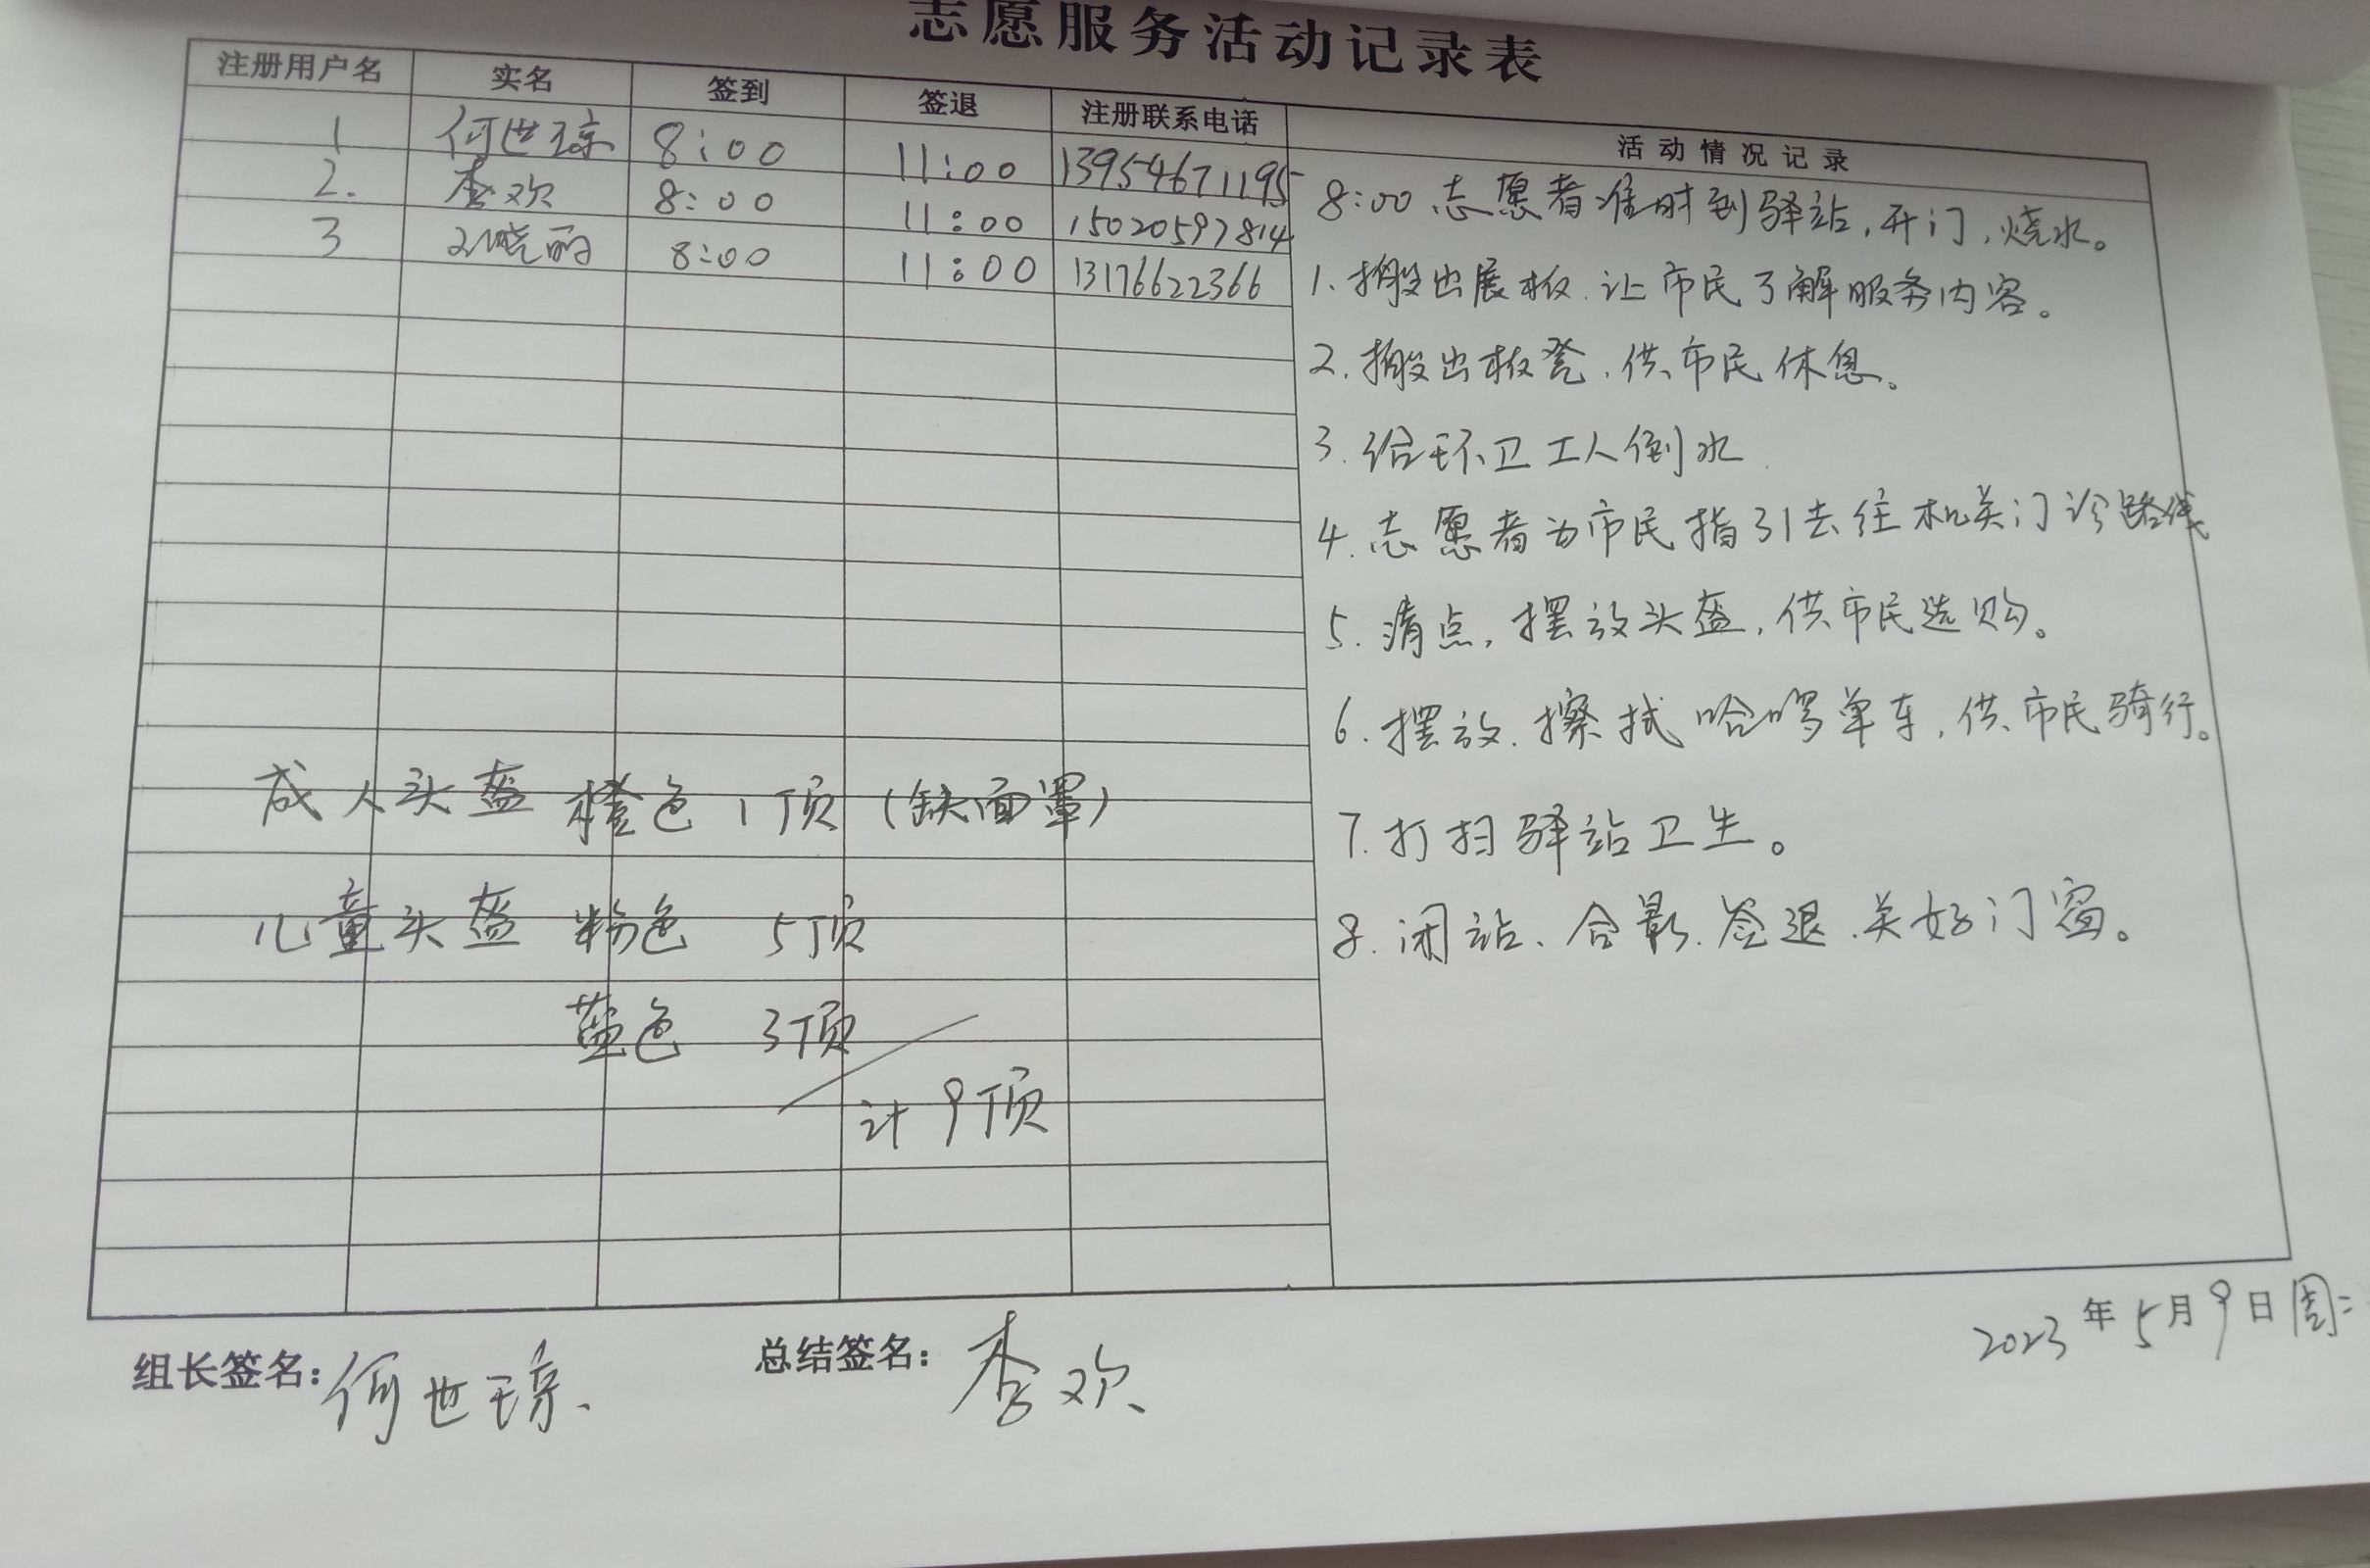 志愿服务活动记录表
注册用户名 实名 签到 签退 注册联系电话 活动情况记录
1 何世琼 8:00 11:00 13954671195
2. 李欢 8:00 11:00 15020597814
3 刘晓丽 8:00 11:00 13176622366
成人头盔 橙色 1顶(缺面罩)
儿童头盔 粉色 5顶
蓝色 3顶
计9顶
8:00 志愿者准时到驿站,开门,烧水。
1. 搬出展板、让市民了解服务内容。
2. 搬出板凳、供市民休息。
3. 给环卫工人倒水
4. 志愿者为市民指引去往机关门诊路线
5. 清点,摆放头盔,供市民选购。
6. 摆放、擦拭哈啰单车,供市民骑行。
7. 打扫驿站卫生。
8. 闭站、合影、签退、关好门窗。
组长签名:何世琼、 总结签名:李欢
2023年5月9日 周二